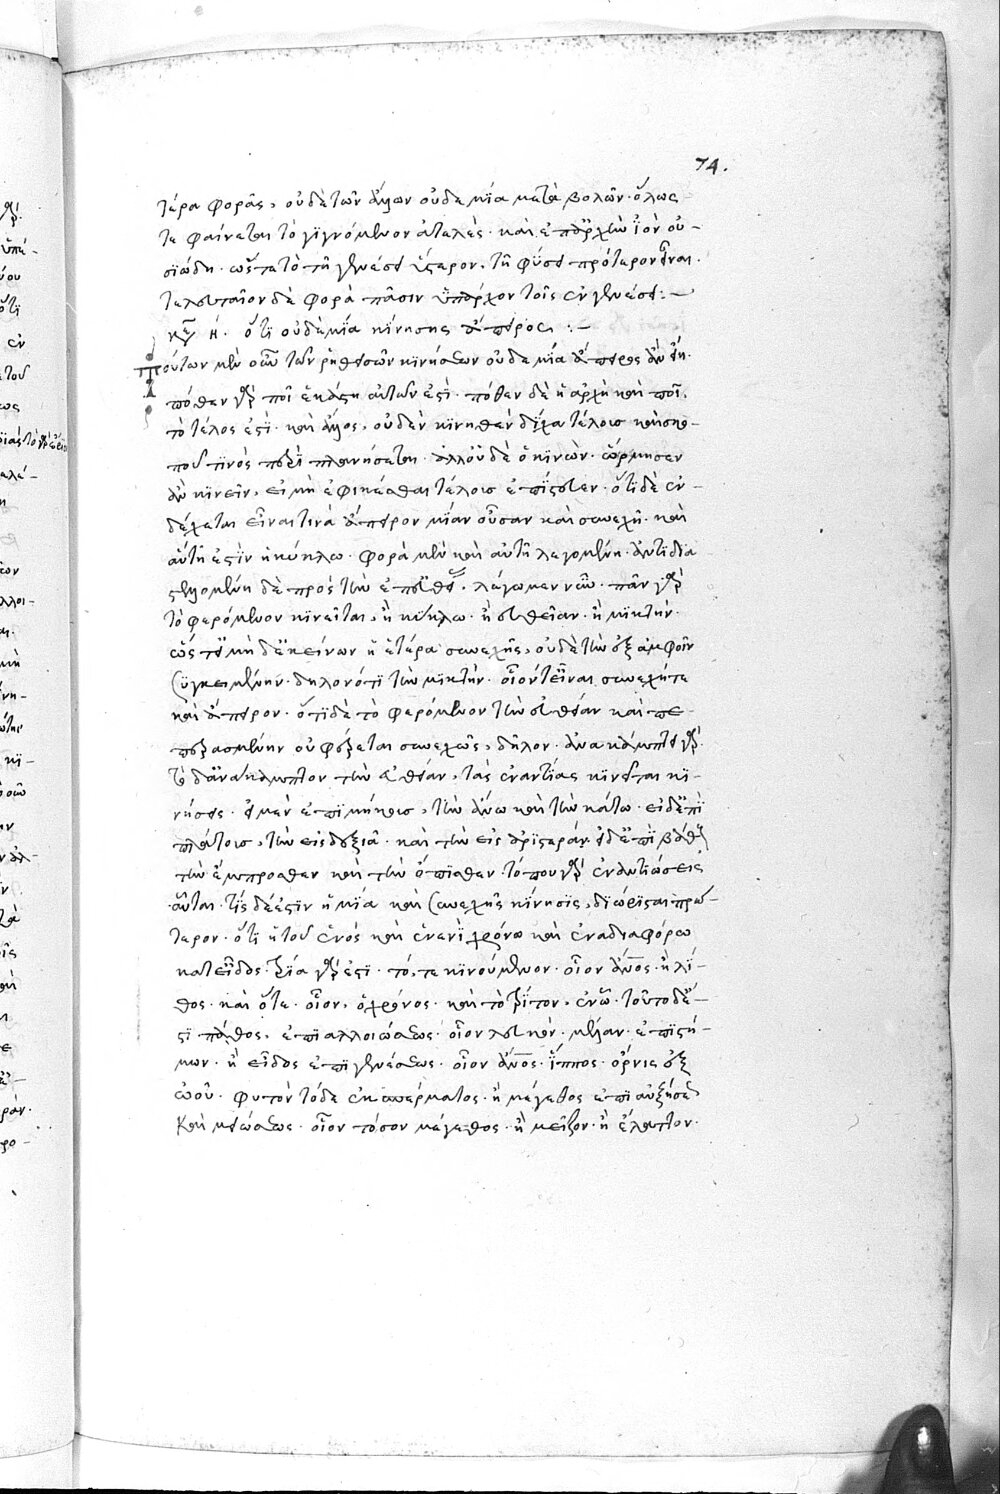 74.
τέρα φορᾶς, οὐδὲ τῶν ἄλλων οὐδεμία μεταβολῶν. ὅλως
τε φαίνεται τὸ γιγνόμενον ἀτελὲς. καὶ ἐπ' ἀρχὴν ἰὸν οὐ-
σιώδη. ὥστε τὸ τῇ γενέσει ὕστερον, τῇ φύσει πρότερον εἶναι.
τελευταῖον δὲ φορὰ πᾶσιν ὑπάρχον τοῖς ἐν γενέσει: –
κεφ η. ὅτι οὐδεμία κίνησις ἄπειρος: –
Τούτων μὲν οὖν τῶν ῥηθεισῶν κινήσεων οὐδεμία ἄπειρος ἂν εἴη.
πόθεν γὰρ ποῖ ἑκάστη αὐτῶν ἐστὶ. πόθεν δὲ ἡ ἀρχὴ καὶ ποῖ,
τὸ τέλος ἐστὶ. καὶ ἄλλως, οὐδὲν κινηθὲν δίχα τέλους καὶ σκο-
ποῦ τινός πλανήσεται. ἀλλ' οὐδὲ ὁ κινῶν. ὥρμησεν
ἂν κινεῖν, εἰ μὴ ἐφικέσθαι τέλους ἐπίστευεν. ὅτι δὲ ἐν-
δέχεται εἶναι τινὰ ἄπειρον μίαν οὖσαν καὶ συνεχῆ. καὶ
αὕτη ἐστὶν ἡ κύκλω. φορὰ μὲν καὶ αὐτὴ λεγομένη. ἀντιδια
στελλομένη δὲ πρός τὴν ἐπ' εὐθείας, λέγωμεν νῦν. πᾶν γὰρ
τὸ φερόμενον κινεῖται, ἢ κύκλω. ἢ εὐθεῖαν. ἢ μικτήν.
ὥστε μὴ δ' ἐκείνων ἡ ἑτέρα συνεχὴς, οὐδὲ τὴν ἐξ ἀμφοῖν
συγκειμένην. δηλονότι τὴν μικτήν. οἷόν τε εἶναι συνεχῆ τε
καὶ ἄπειρον. ὅτι δὲ τὸ φερόμενον τὴν εὐθεῖαν καὶ πε-
περασμένην οὐ φέρεται συνεχῶς, δῆλον. ἀνακάμπτει γὰρ.
τὸ δ' ἀνακάμπτον τὴν εὐθεῖαν, τὰς ἐναντίας κινεῖται κι-
νήσεις. εἰ μὲν ἐπὶ μήκους, τὴν ἄνω καὶ τὴν κάτω. εἰ δ' ἐπὶ
πλάτους, τὴν εἰς δεξιὰ. καὶ τὴν εἰς ἀριστεράν. εἰ δ' ἐπὶ βάθους
τὴν ἔμπροσθεν καὶ τὴν ὄπισθεν. τόπου γὰρ ἐναντιώσεις
αὗται. τίς δέ ἐστιν ἡ μία καὶ συνεχὴς κίνησις, διώρισται πρό-
τερον. ὅτι ἡ τοῦ ἑνός καὶ ἐν ἑνὶ χρόνω καὶ ἐν ἀδιαφόρω
κατ' εἶδος. τρία γὰρ ἐστὶ. τό, τε κινούμενον. οἷον ἄνος. ἢ λί-
θος. καὶ ὅτε. οἷον, ὁ χρόνος. καὶ τὸ τρίτον, ἐν ᾧ. τοῦτο δέ ἐ-
στι πάθος, ἐπὶ ἀλλοιώσεως. οἷον λευκὸν. μέλαν. ἐπιστή-
μων. ἢ εἶδος ἐπὶ γενέσεως. οἷον ἄνος. ἵππος. ὄρνις ἐξ
ὠοῦ. φυτὸν τόδε ἐκ σπέρματος. ἢ μέγεθος ἐπὶ αὐξήσεως
καὶ μειώσεως. οἷον τόσον μέγεθος. ἢ μεῖζον. ἢ ἔλαττον.